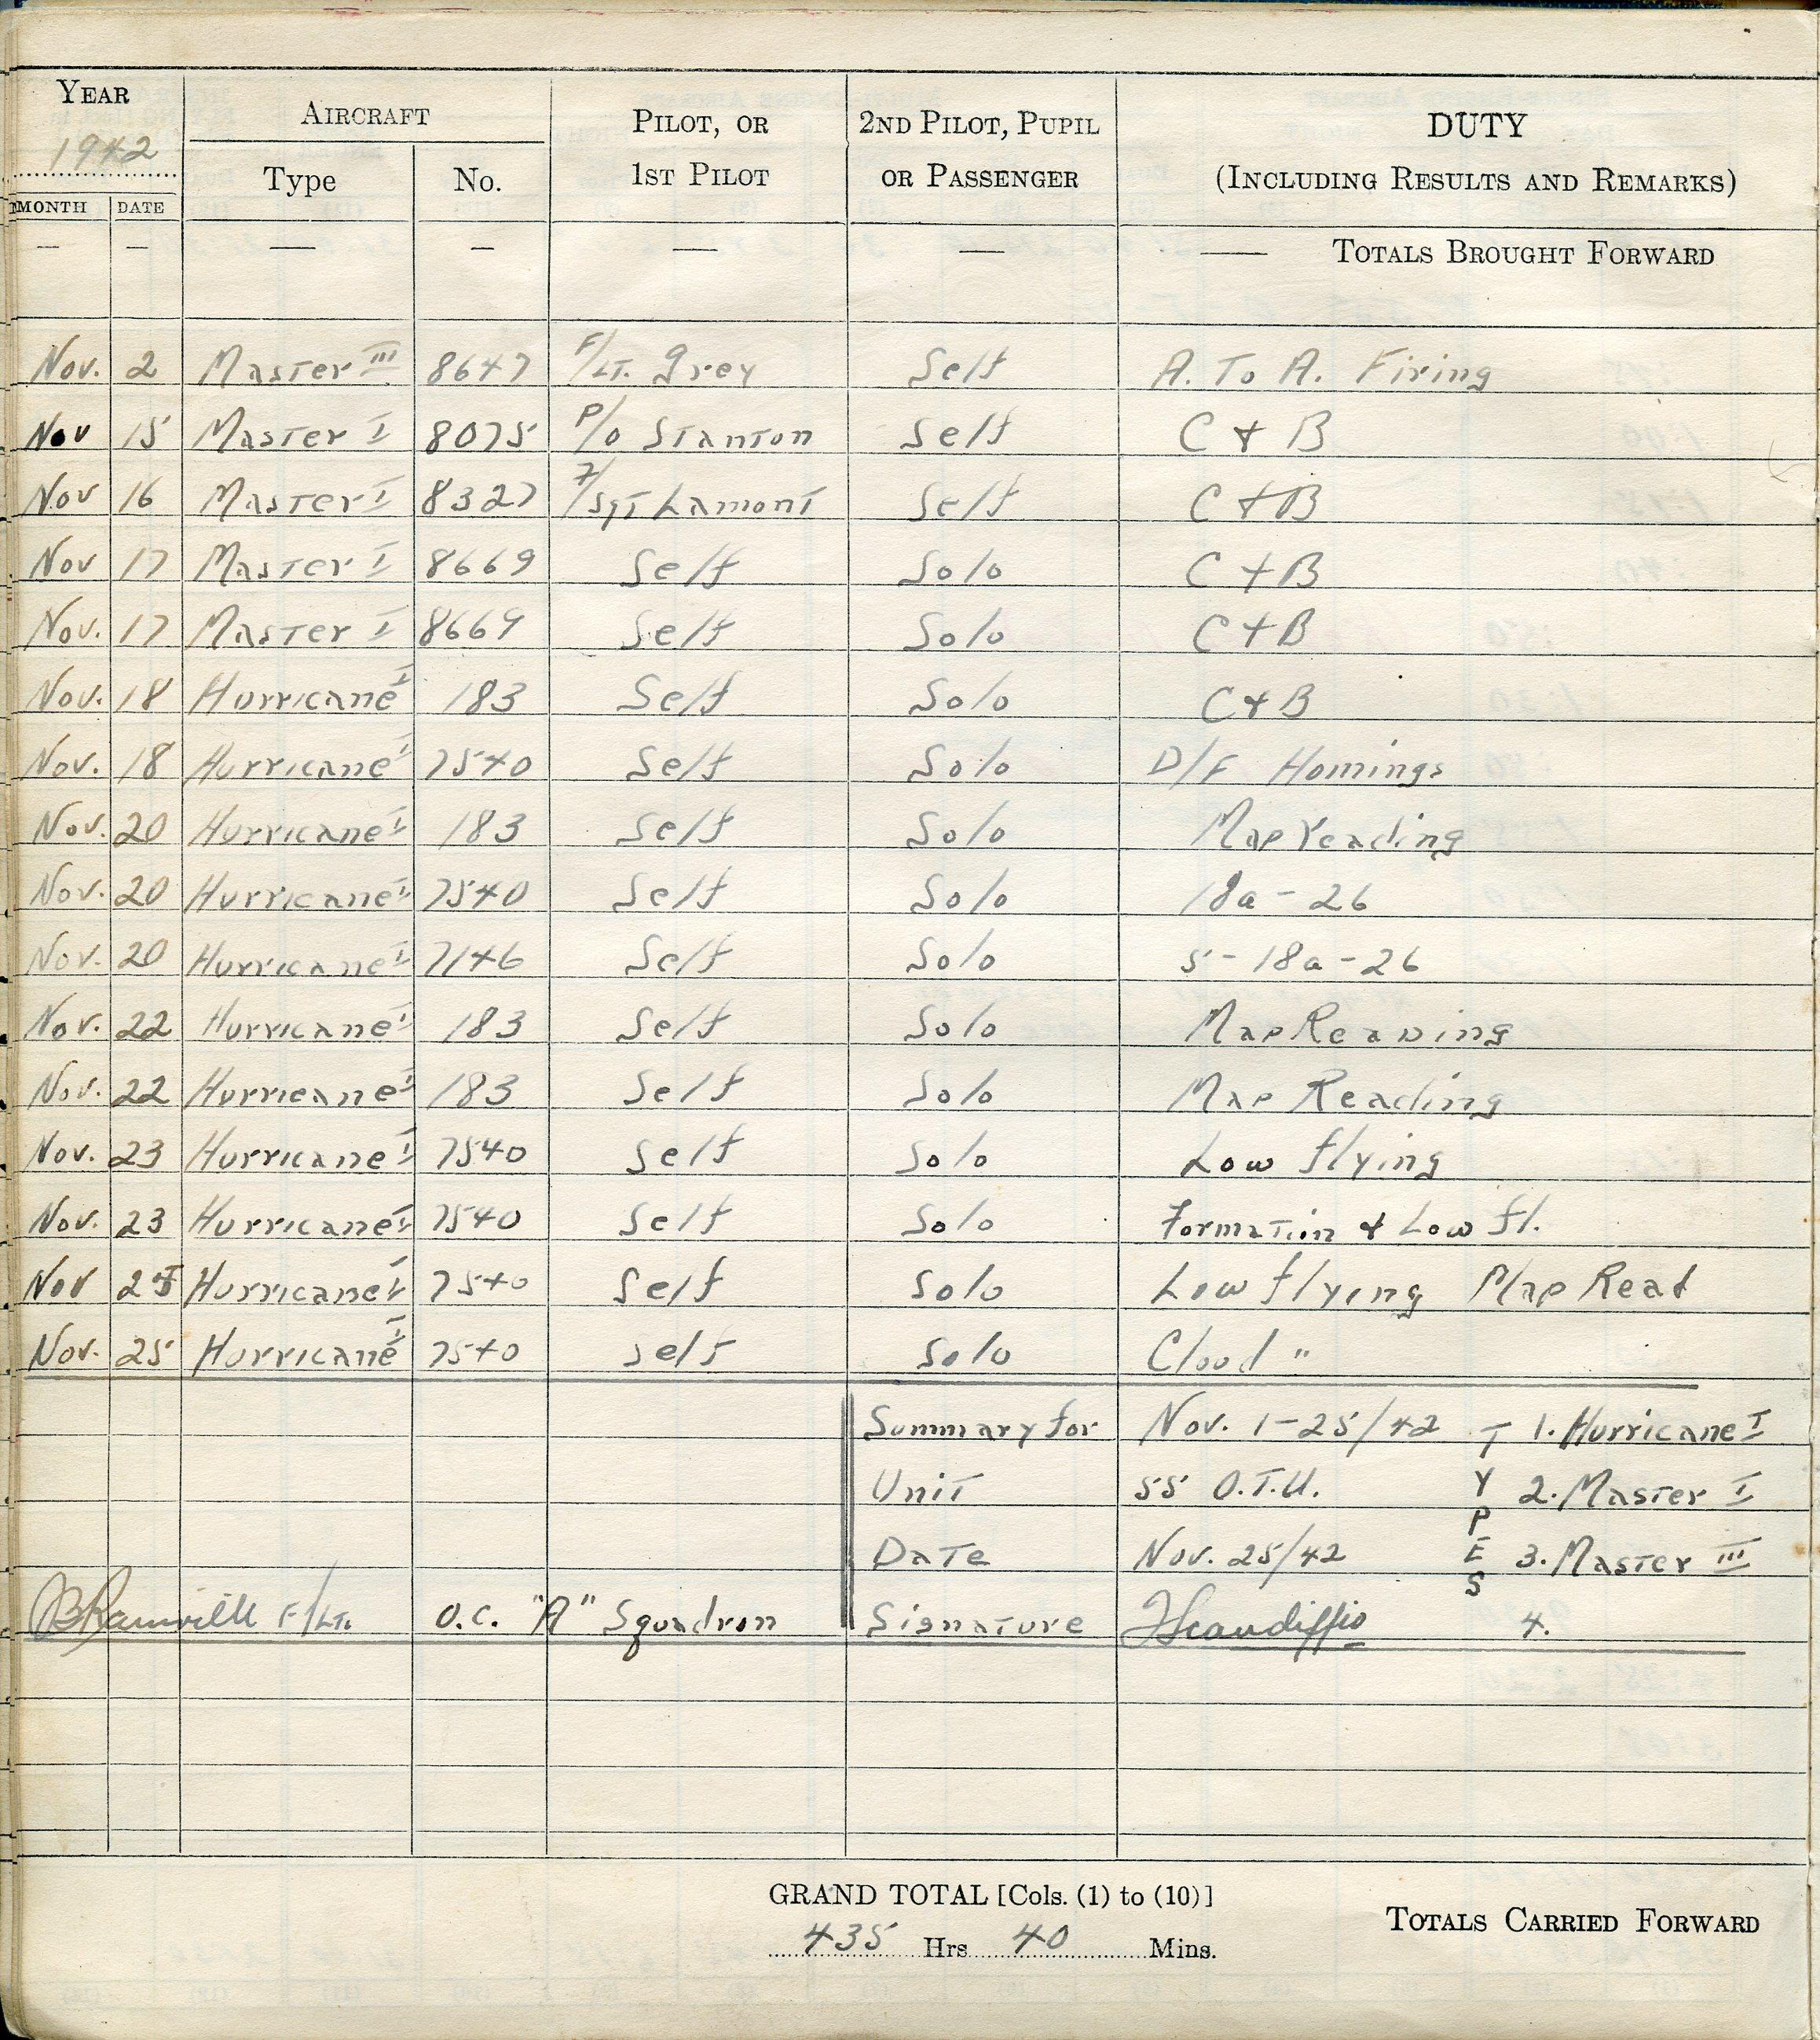 YEAR AIRCRAFT PILOT, OR 2ND PILOT, PUPIL DUTY
1942 Type No. 1ST PILOT OR PASSENGER (INCLUDING RESULTS AND REMARKS)
MONTH DATE
— — — — — — — TOTALS BROUGHT FORWARD
Nov. 2 Master III 8647 F/Lt. Grey Self A. To A. Firing
Nov 15 Master I 8075 P/O Stanton Self C & B
Nov 16 Master I 8327 F/Sgt Lamont Self C & B
Nov 17 Master I 8669 Self Solo C & B
Nov. 17 Master I 8669 Self Solo C & B
Nov. 18 Hurricane I 183 Self Solo C & B
Nov. 18 Hurricane I 7540 Self Solo D/F Homings
Nov. 20 Hurricane I 183 Self Solo Map reading
Nov. 20 Hurricane I 7540 Self Solo 18a - 26
Nov. 20 Hurricane I 7146 Self Solo 5 - 18a - 26
Nov. 22 Hurricane I 183 Self Solo Map Reading
Nov. 22 Hurricane I 183 Self Solo Map Reading
Nov. 23 Hurricane I 7540 Self Solo Low flying
Nov. 23 Hurricane I 7540 Self Solo Formation & Low fl.
Nov Hurricane I 7540 Self Solo Low flying Map Read
Nov. 25 Hurricane I 7540 Self Solo Cloud "
Summary for Nov. 1-25/42 TYPES 1. Hurricane I
Unit 55 O.T.U. 2. Master I
Date Nov. 25/42 3. Master III
F/Lt. O.C. "A" Squadron Signature JScandiffio 4.
GRAND TOTAL [Cols. (1) to (10)]
435 Hrs 40 Mins.
TOTALS CARRIED FORWARD